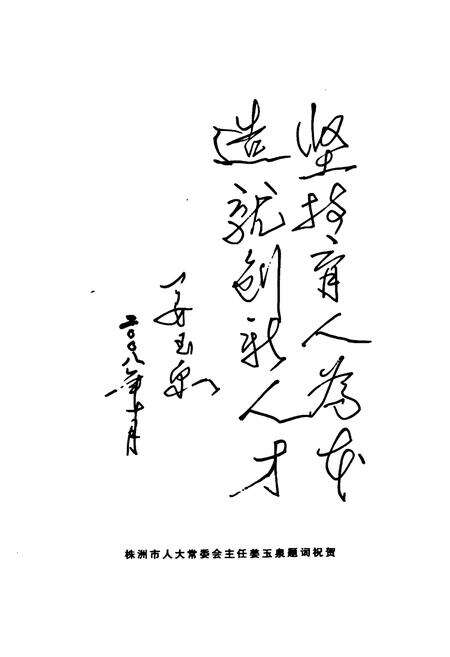 坚持育人为本
造就创新人才
姜玉泉
二〇〇八年十月
株洲市人大常委会主任姜玉泉题词祝贺